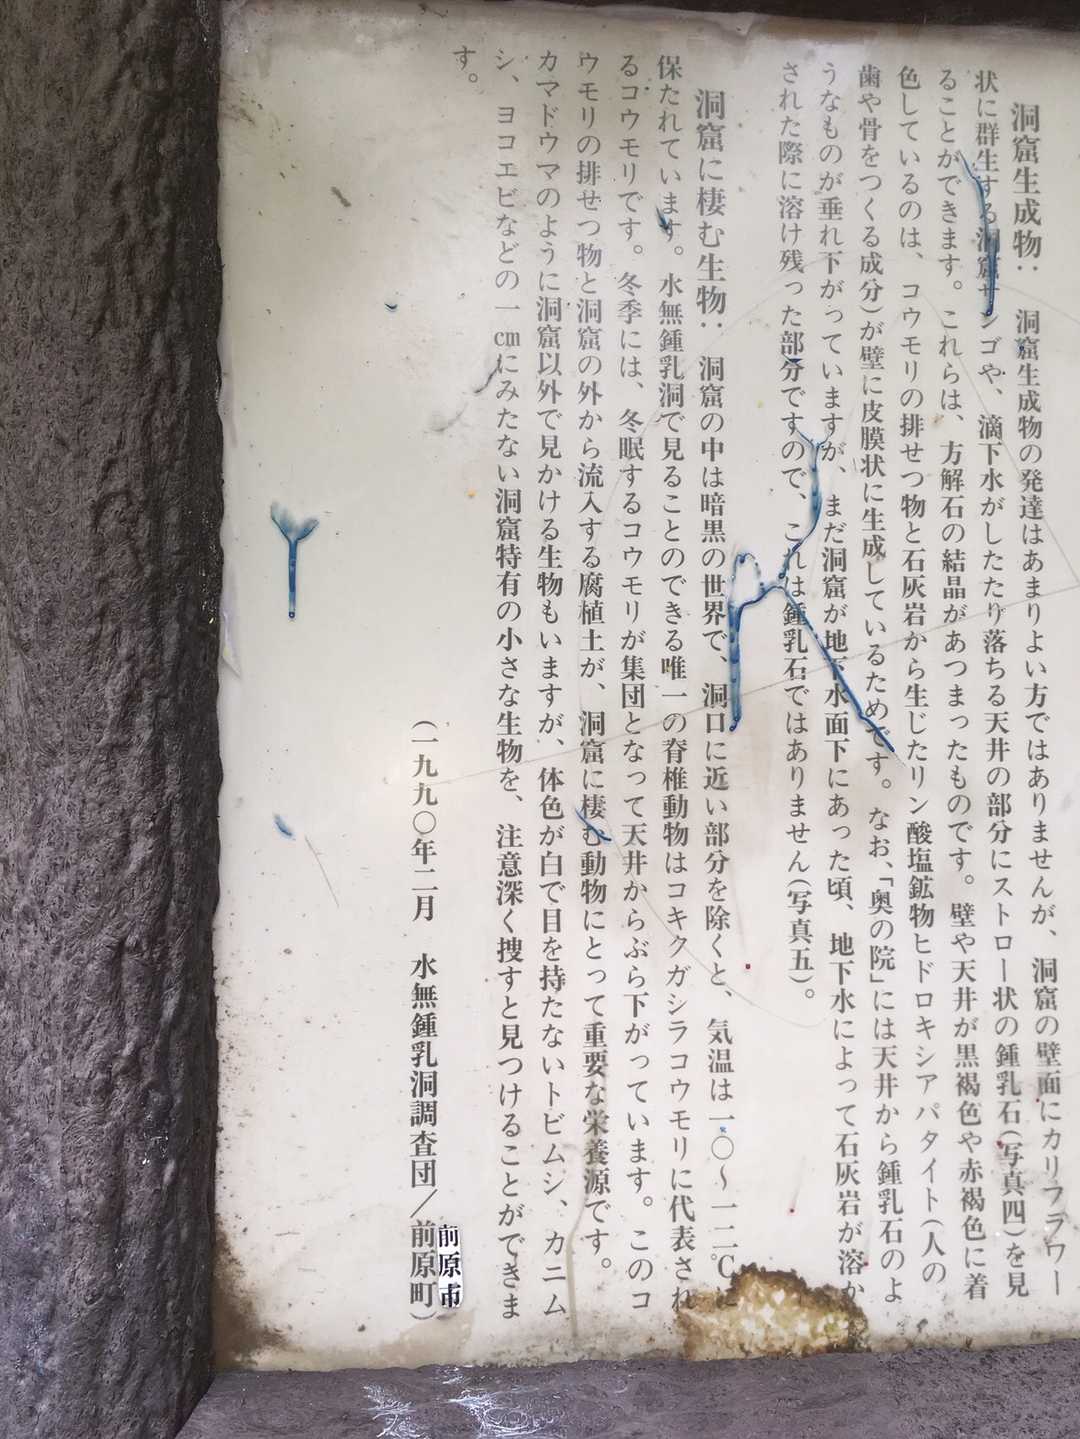 洞窟生成物： 洞窟生成物の発達はあまりよい方ではありませんが、洞窟の壁面にカリフラワー
状に群生する洞窟サンゴや、滴下水がしたたり落ちる天井の部分にストロー状の鍾乳石（写真四）を見
ることができます。これらは、方解石の結晶があつまったものです。壁や天井が黒褐色や赤褐色に着
色しているのは、コウモリの排せつ物と石灰岩から生じたリン酸塩鉱物ヒドロキシアパタイト（人の
歯や骨をつくる成分）が壁に皮膜状に生成しているためです。なお、「奥の院」には天井から鍾乳石のよ
うなものが垂れ下がっていますが、まだ洞窟が地下水面下にあった頃、地下水によって石灰岩が溶か
された際に溶け残った部分ですので、これは鍾乳石ではありません（写真五）。
洞窟に棲む生物： 洞窟の中は暗黒の世界で、洞口に近い部分を除くと、気温は一〇〜一二℃に
保たれています。水無鍾乳洞で見ることのできる唯一の脊椎動物はコキクガシラコウモリに代表され
るコウモリです。冬季には、冬眠するコウモリが集団となって天井からぶら下がっています。このコ
ウモリの排せつ物と洞窟の外から流入する腐植土が、洞窟に棲む動物にとって重要な栄養源です。
カマドウマのように洞窟以外で見かける生物もいますが、体色が白で目を持たないトビムシ、カニム
シ、ヨコエビなどの一cmにみたない洞窟特有の小さな生物を、注意深く捜すと見つけることができま
す。
（一九九〇年二月 水無鍾乳洞調査団／前原町）
前原市